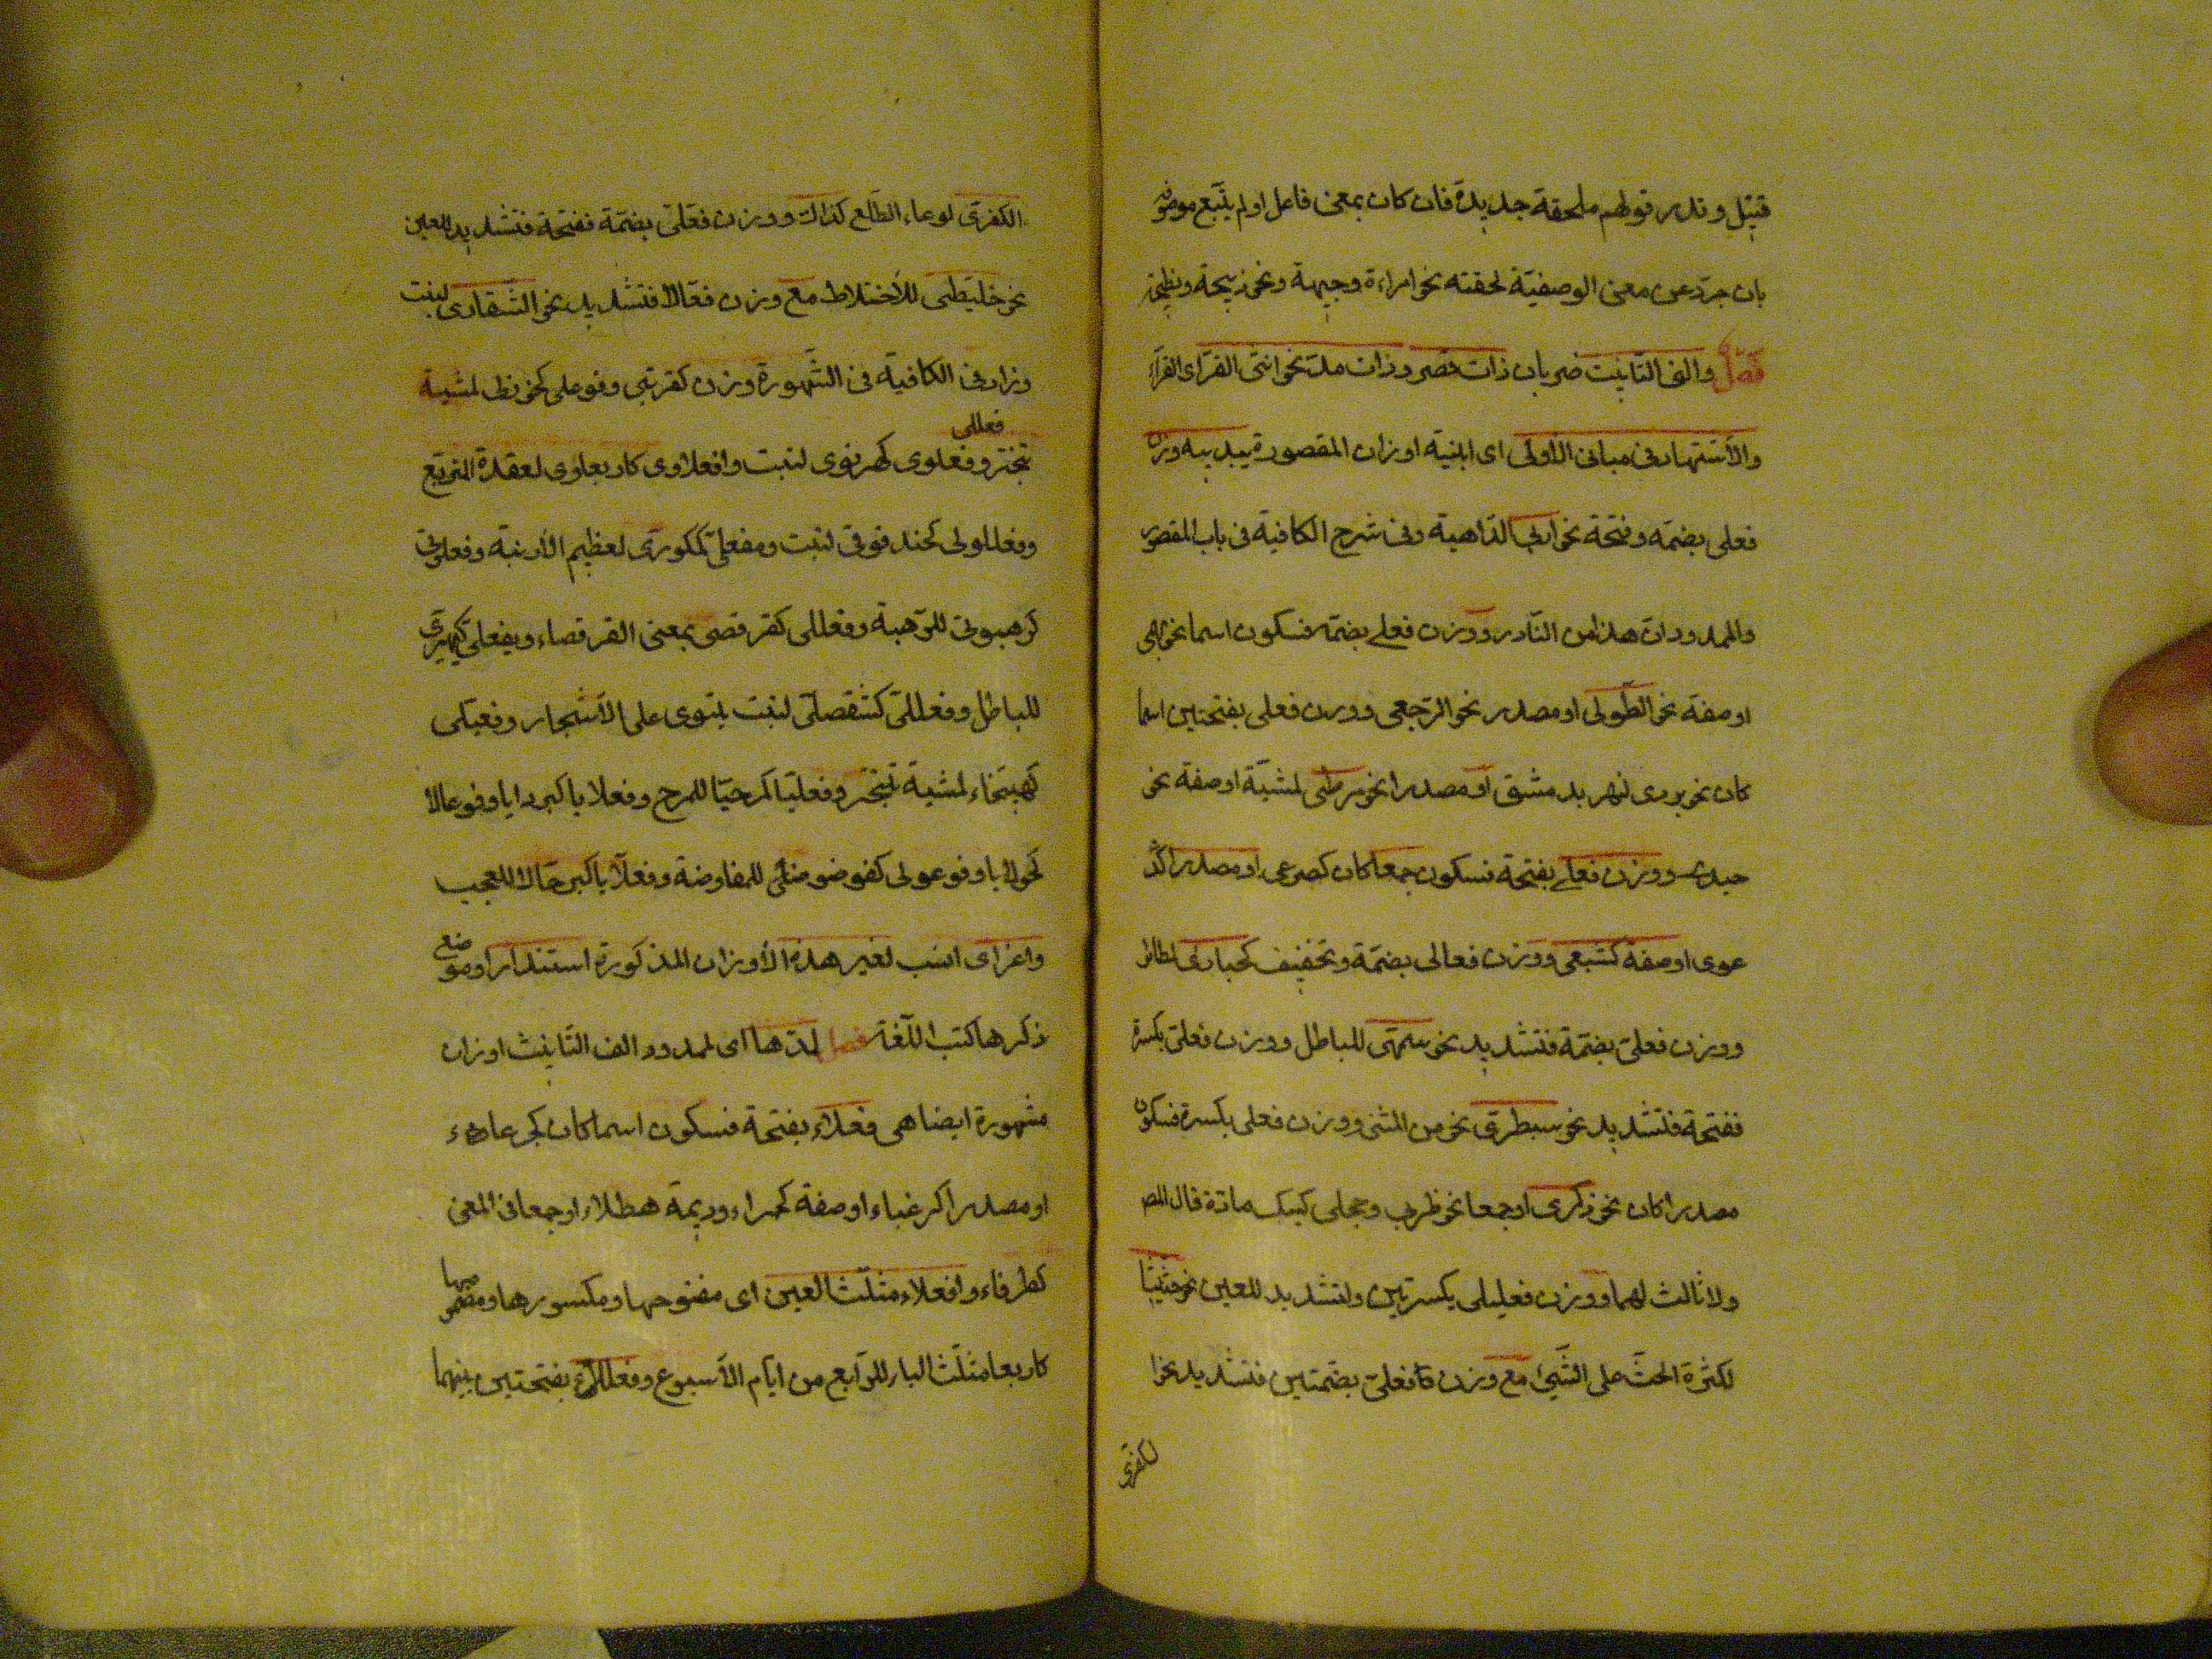 قتيل وندر قولهم ملحفة جديدة فان كان بمعنى فاعل او لم يتبع موصوفه
بان جرد عن معنى الوصفية لحقته نحو امراءة وجيهة ونحو ذبيحة ونطيحة
فصل والف التانيث ضربان ذات قصر وذات مد نحو انثى الغر اى الغراء
والاشتهار فى مبانى الاولى اى ابنية اوزان المقصورة يبديه وزن
فعلى بضمه وفتحة نحو اربى الداهية وفى شرح الكافية فى باب المقصور
والممدود ان هذا من النادر ووزن فعلى بضمة فسكون اسما نحو بهمى
او صفة نحو الطولى او مصدر نحو الرجعى ووزن فعلى بفتحتين اسما
كان نحو بردى لنهر بدمشق او مصدرا نحو مرطى لمشية او صفة نحو
حيدى ووزن فعلى بفتحة فسكون جمعا كان كصرعى او مصدرا كد
عوى او صفة كشبعى ووزن فعالى بضمة وتخفيف كحبارى لطائر
ووزن فعلى بضمة فتشديد نحو سمهى للباطل ووزن فعلى بكسرة
ففتحة فتشديد نحو سبطرى نحو من المشى ووزن فعلى بكسرة فسكون
مصدرا كان نحو ذكرى او جمعا نحو ظربى وحجلى كيسك مادة قال المص
ولا ثالث لهما ووزن فعيلى بكسرتين وتشديد للعين نحو حثيثا
لكثرة الحث على الشىء مع وزن فعلى بضمتين فتشديد نحو ا
لكفرى
الكفرى لوعاء الطلع كذاك ووزن فعلى بضمة ففتحة فتشديد للعين
نحو خليطى للاختلاط مع وزن فعالا فتشديد نحو الشقارى لنبت
وزاد فى الكافية فى الشهورة وزن كفرتنى وفوعلى كخوزلى لمشية
فعللى
تبختر وفعلوى كهرنوى لنبت وافعلاوى كاربعاوى لقعدة المتربع
وفعللولى كحندقوقى لنبت ومفعلى كمكورى لعظيم الارنبة وفعلوتى
كرهبوتى للرهبة وفعللى كقرفصى بمعنى القرفصاء ويفعلى كيهيرى
للباطل وفعللى كشقصلى لنبت يلتوى على الاشجار وفعيلى
كهبيخاء لمشية تبختر وفعليا كمرحيا للمرح وفعلايا كبردايا وفوعالا
كحولايا وفوعولى كفوضوضى للمفاوضة وفعلايا كبرحايا للعجب
واعز اى انسب لغير هذه الاوزان المذكورة استندارا وموضع
ذكرها كتب اللغة فصل لمدها اى لممدود الف التانيث اوزان
مشهورة ايضا هى فعلاء بفتحة فسكون اسما كان كجرعاء
او مصدرا كرغباء او صفة كحمراء وديمة هطلاء او جمعا فى المعنى
كطرفاء وافعلاء مثلث العين اى مفتوحها ومكسورها ومضمومها
كاربعا مثلث الباء للرابع من ايام الاسبوع وفعللاء بفتحتين بينهما